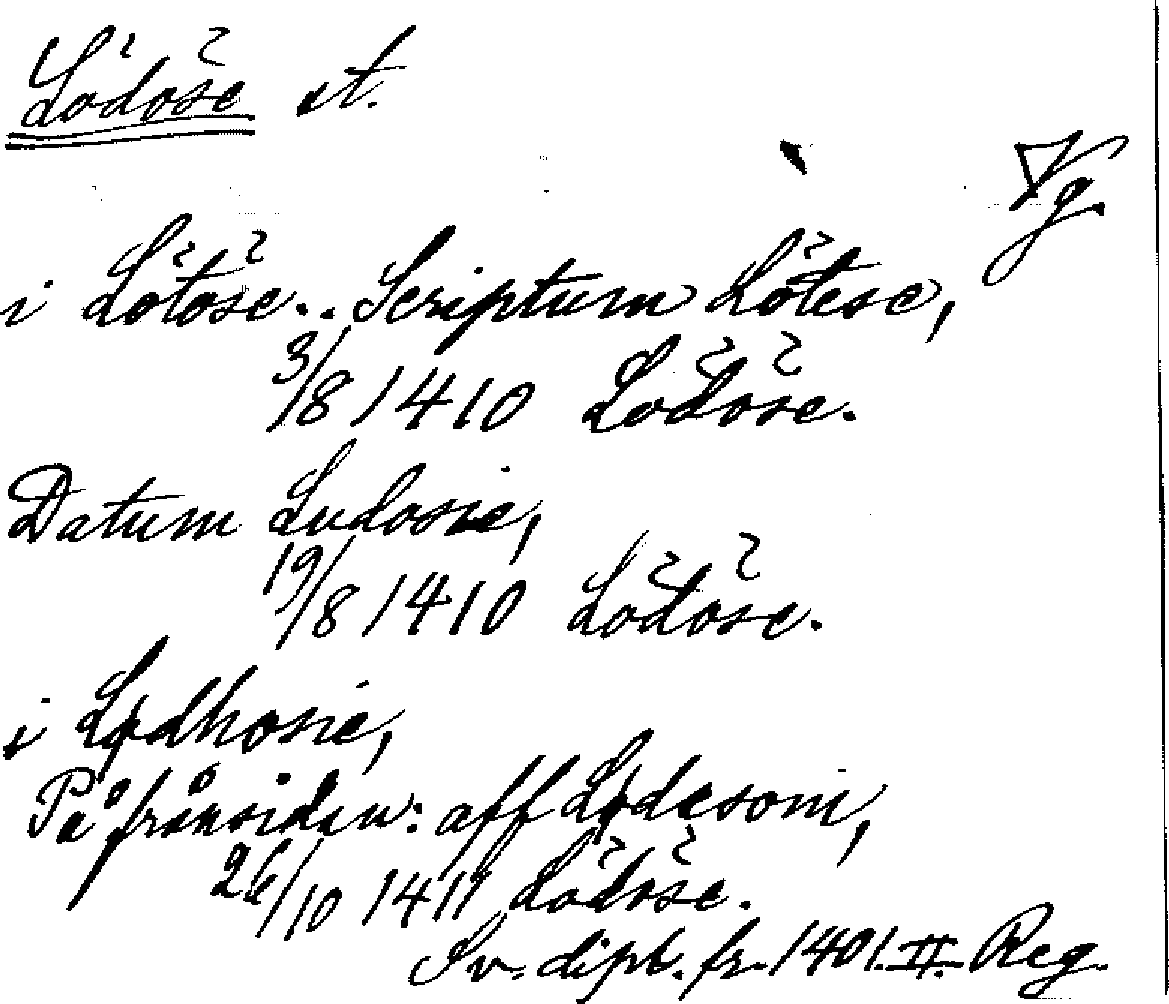 Lödöse st.
Vg.
i Lötöse.. Scriptum Lötese,
3/8 1410 Lödöse.
Datum Ludosie,
19/8 1410 Lödöse.
i Lødhosie,
På frånsidan: aff Lødesom,
26/10 1411 Lödöse.
Sv. dipl. fr. 1401. II. Reg.